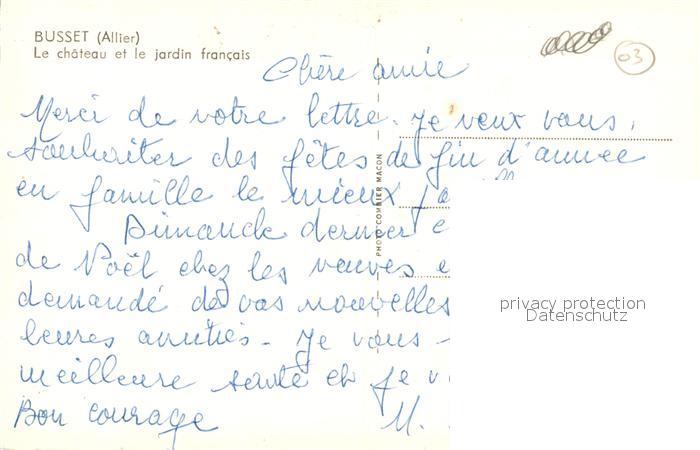 BUSSET (Allier)
Le château et le jardin français
03
Chère amie
Merci de votre lettre. Je veux vous
souhaiter des fêtes de fin d'année
en famille le mieux
Dimanche dernier
de Noël chez les veuves
demandé de vos nouvelles
leures amitiés - Je vous
meilleure santé et je
Bon courage M.
PHOTO COMBIER MACON
privacy protection
Datenschutz